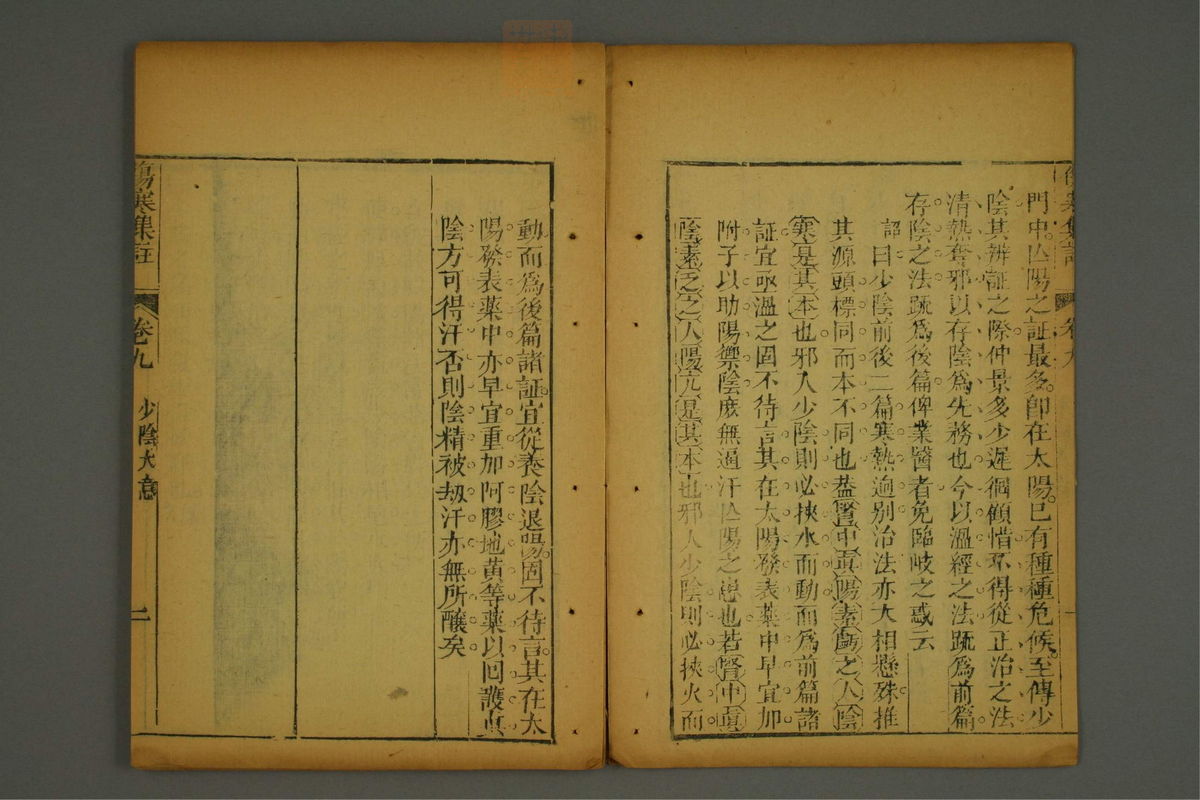 門中亾陽之証最多卽在太陽已有種種危候至傳少
陰其辨証之際仲景多少遲徊顧惜不得從正治之法
清熱奪邪以存陰爲先務也今以溫經之法疏爲前篇
存陰之法疏爲後篇俾業醫者免臨岐之惑云
詔曰少陰前後二篇寒熱逈別治法亦大相懸殊推
其源頭標同而本不同也葢腎中眞陽素虧之人陰
寒是其本也邪入少陰則必挾水而動而爲前篇諸
証宜亟溫之固不待言其在太陽發表藥中早宜加
附子以助陽禦陰庶無過汗亾陽之患也若腎中眞
陰素乏之人陽亢是其本也邪入少陰則必挾火而
傷寒集註 卷九
動而爲後篇諸証宜從養陰退陽固不待言其在太
陽發表藥中亦早宜重加阿膠地黃等藥以回護眞
陰方可得汗否則陰精被刼汗亦無所釀矣
傷寒集註 卷九 少陰大意 二